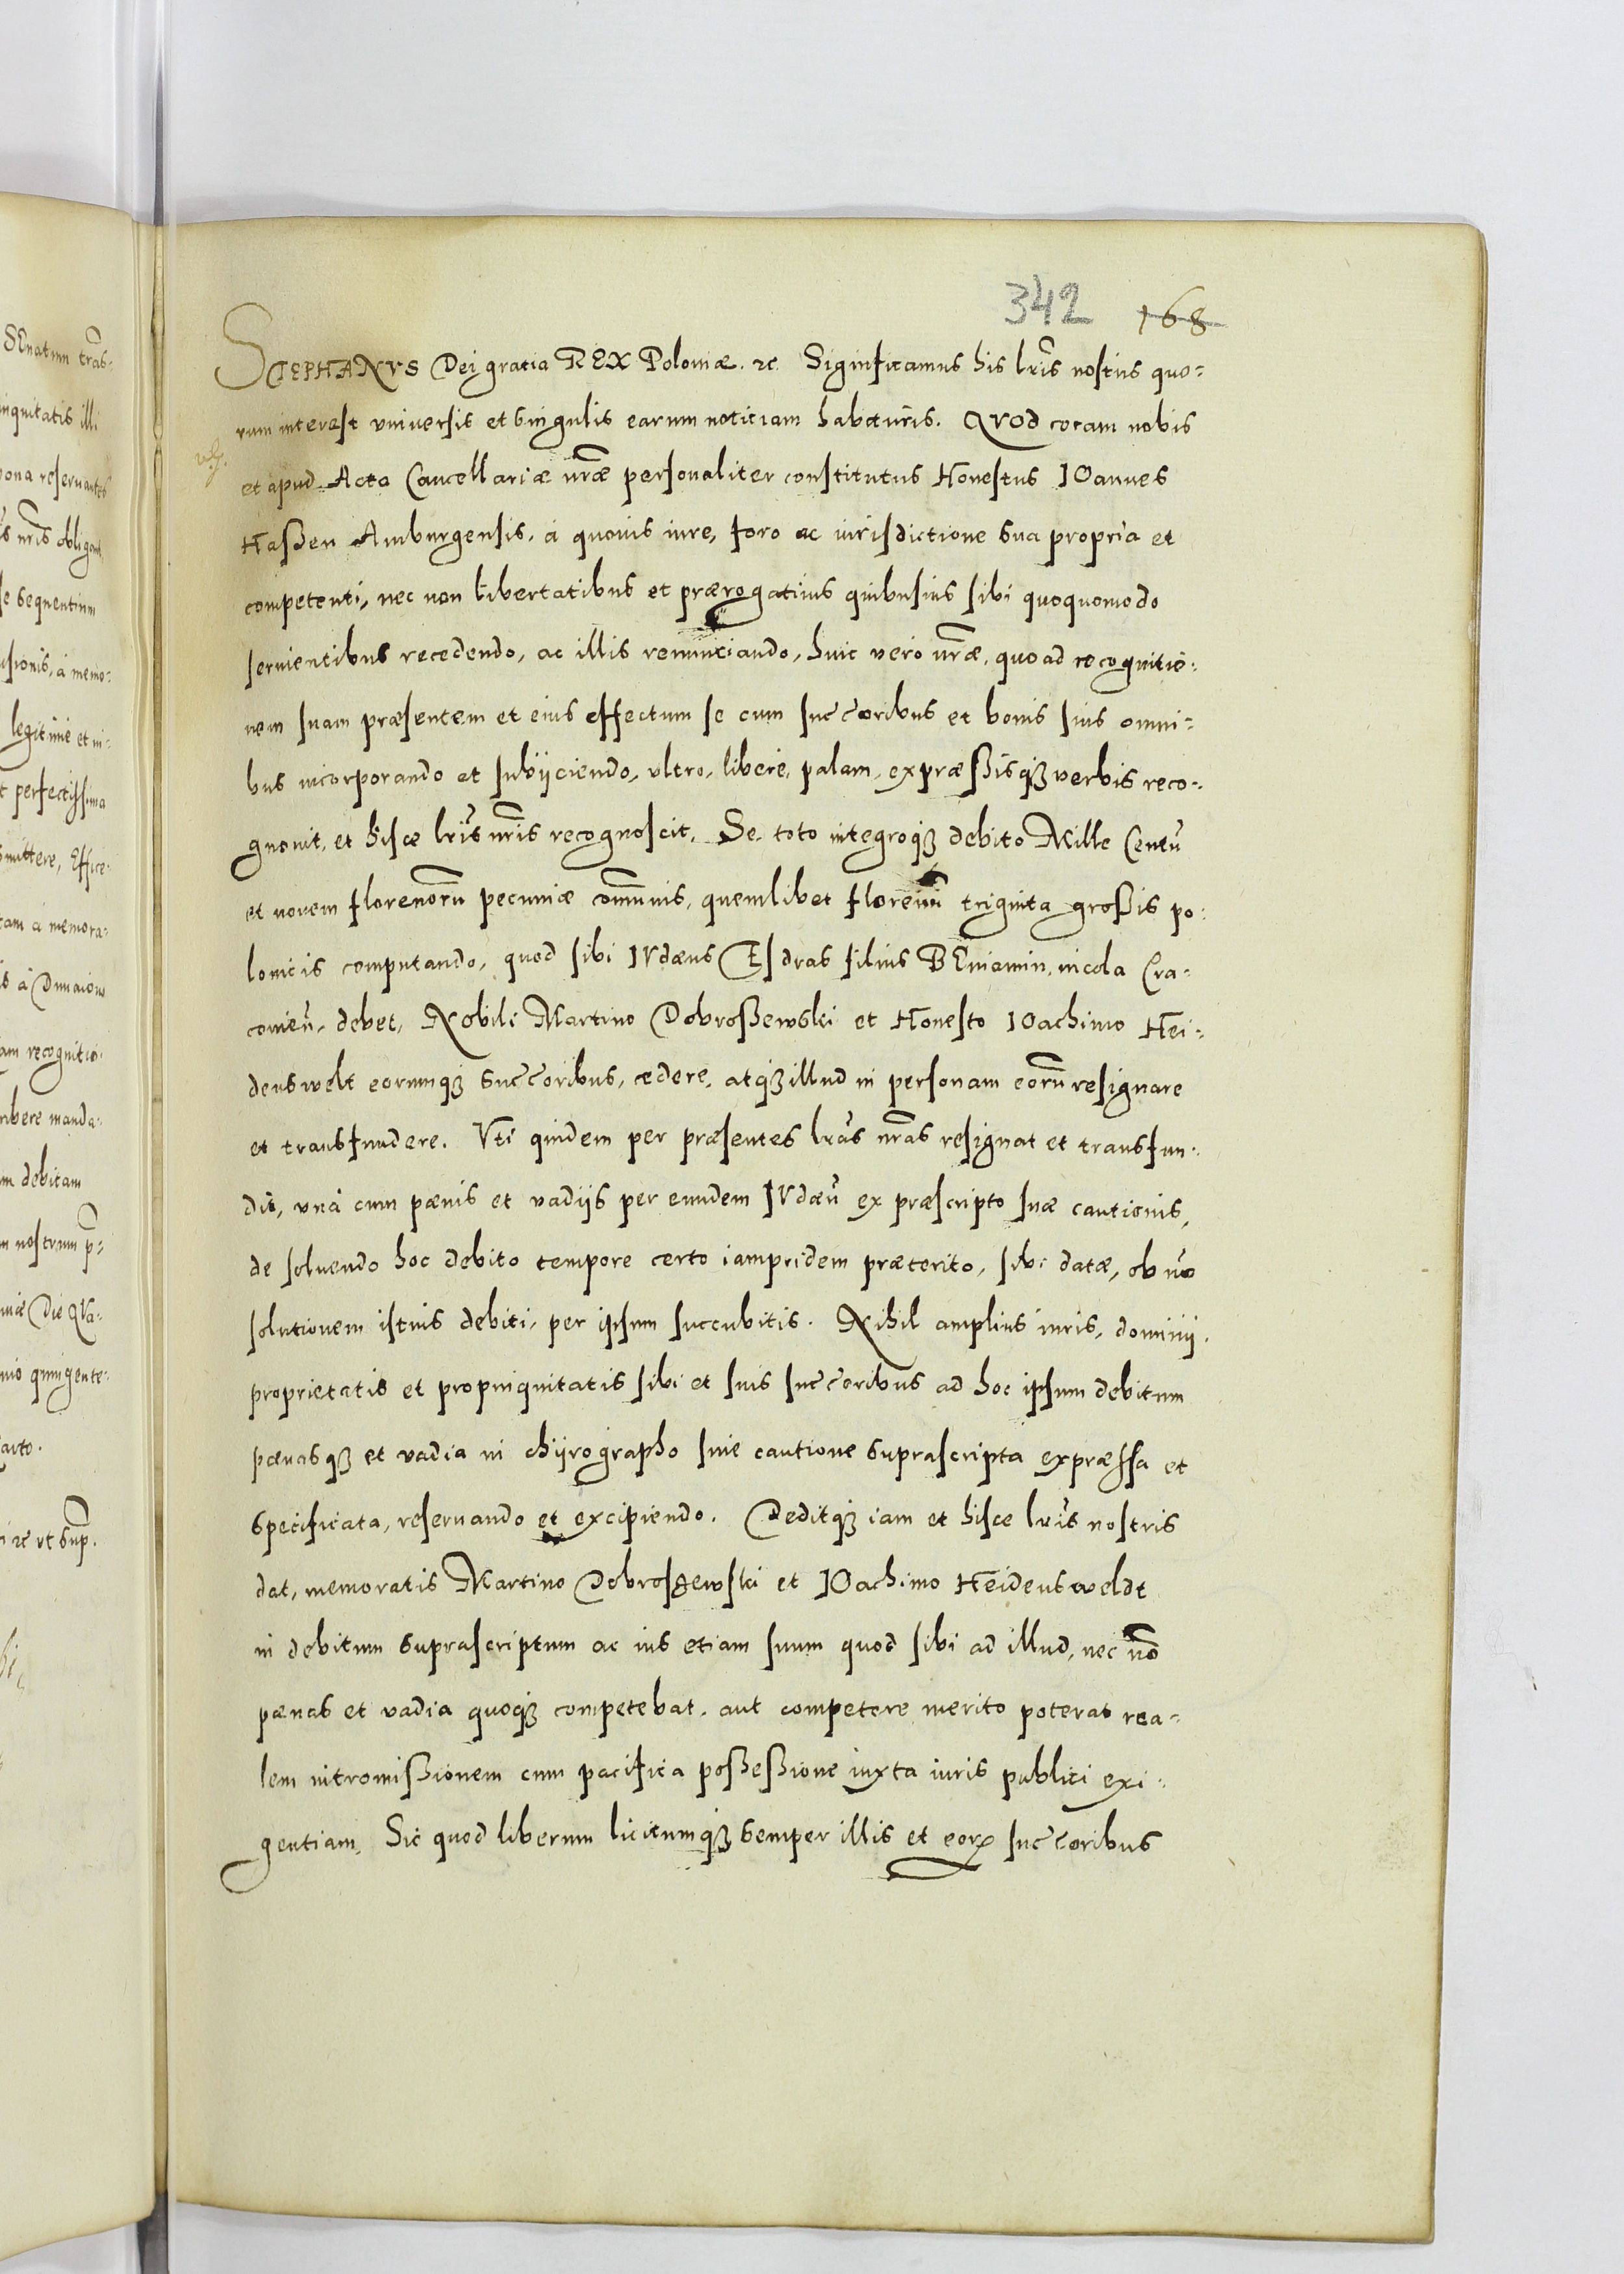 342 168
STEPHANVS Dei gratia REX Poloniæ. ꝛc. Significamus his lr̃is nostris quo-
rum interest vniversis et singulis earum noticiam habituris. QVOd coram nobis
et apud Acta Cancellariæ nr̃æ personaliter constitutus Honestus IOannes
Haßen Amburgensis, à quovis iure, foro ac iurisdictione sua propria et
competenti, nec non libertatibus et prærogativis quibusvis sibi quoquomodo
servientibus recedendo, ac illis renunciando, huic vero nr̃æ, quoad recognitio-
nem suam præsentem et eius effectum se cum succ̃oribus et bonis suis omni-
bus incorporando et subijciendo, vltro, libere, palam, expræßisqꝫ verbis reco-
gnovit, et hisce lr̃is nr̃is recognoscit, Se toto integroqꝫ debito Mille Centũ
et novem florenorũ pecuniæ com̃unis, quemlibet florenũ triginta großis po-
lonicis computando, quod sibi IVdæus ESdras filius BEniamin, incola Cra-
covieñ, debet, Nobili Martino Dobroßewski et Honesto IOachimo Hei-
denswelt eorumqꝫ succ̃oribus, cedere, atqꝫ illud in personam eorũ resignare
et transfundere. Vti quidem per præsentes lr̃as nr̃as resignat et transfun-
dit, vnà cum pænis et vadijs per eundem IVdæũ ex præscripto suæ cautionis,
de solvendo hoc debito tempore certo iampridem præterito, sibi datæ, ob nõ
solutionem istius debiti, per ipsum succubitis. Nihil amplius iuris, dominij,
proprietatis et propinquitatis sibi et suis succ̃oribus ad hoc ipsum debitum
pænasqꝫ et vadia in chijrographo sive cautione suprascripta expræssa et
specificata, reservando et excipiendo. Deditqꝫ iam et hisce lr̃is nostris
dat, memoratis Martino Dobroszewski et IOachimo Heidensweldt
in debitum suprascriptum ac ius etiam suum quod sibi ad illud, nec nõ
pænas et vadia quoqꝫ competebat, aut competere merito poterat rea-
lem intromißionem cum pacifica poßeßione iuxta iuris publici exi-
gentiam. Sic quod liberum licitumqꝫ semper illis et eorꝝ succ̃oribus